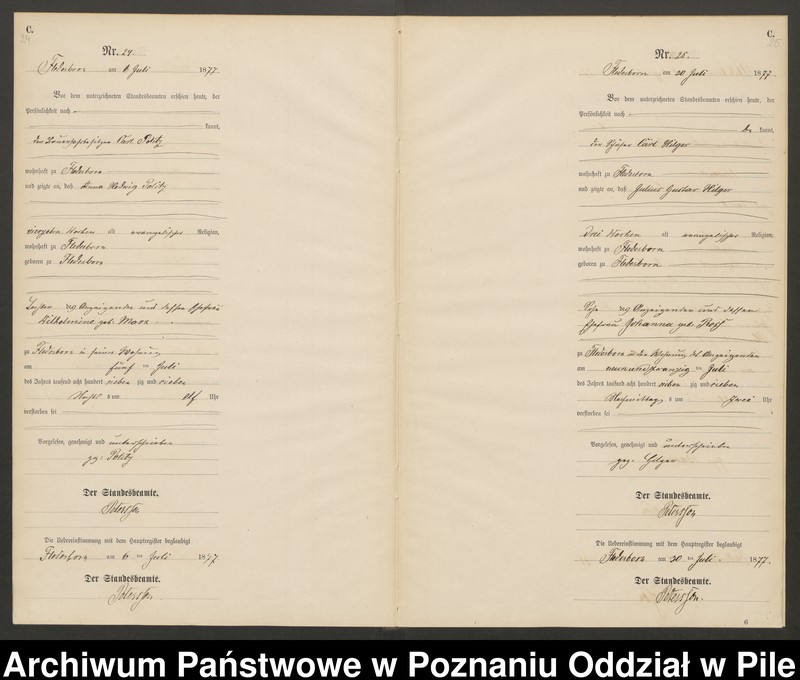 C.
24
Nr. 24.
Flederborn am 6 Juli 1877
Vor dem unterzeichneten Standesbeamten erschien heute, der
Persönlichkeit nach
kannt,
Carl Politz
wohnhaft zu Flederborn
und zeigte an, daß Anna Hedwig Politz
vierzehn Wochen alt evangelischer Religion,
wohnhaft zu Flederborn
geboren zu Flederborn
Tochter des Anzeigenden und dessen Ehefrau
Wilhelmine geb.
zu Flederborn in seiner Wohnung
am fünf ten Juli
des Jahres tausend acht hundert sieben zig und sieben
Nachts um elf Uhr
verstorben sei
Vorgelesen, genehmigt und unterschrieben
gez. Politz
Der Standesbeamte.
Die Uebereinstimmung mit dem Hauptregister beglaubigt
Flederborn am 6 ten Juli 1877
Der Standesbeamte.
C.
25
Nr. 25.
Flederborn am 30 Juli 1877
Vor dem unterzeichneten Standesbeamten erschien heute, der
Persönlichkeit nach
be kannt,
der Schäfer Carl Hilger
wohnhaft zu Flederborn
und zeigte an, daß Julius Gustav Hilger
drei Wochen alt evangelischer Religion,
wohnhaft zu Flederborn
geboren zu Flederborn
Sohn des Anzeigenden und dessen
Ehefrau Johanna geb.
zu Flederborn in der Wohnung des Anzeigenden
am neunundzwanzig ten Juli
des Jahres tausend acht hundert sieben zig und sieben
Nachmittags um zwei Uhr
verstorben sei
Vorgelesen, genehmigt und unterschrieben
gez. Hilger
Der Standesbeamte.
Die Uebereinstimmung mit dem Hauptregister beglaubigt
Flederborn am 30 ten Juli 1877.
Der Standesbeamte.
6
Archiwum Państwowe w Poznaniu Oddział w Pile